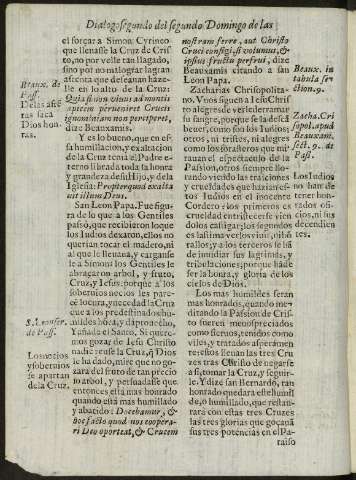 Dialogo segundo del segundo Domingo de las
el forçar a Simon Cyrineo
que lleuasse la Cruz de Chris
to, no por velle tan llagado,
sino por no malograr la gran
afrenta que desseauan haze-
lle en lo alto de la Cruz:
Quia si non viuus ad montis
apicem peruenire
ignominiam non perferret,
dize Beauxamis.
Y es lo bueno, que en es-
sa humillacion, y exaltacion
de la Cruz tenia el Padre e-
terno librada toda la honra
y grandeza de su Hijo, y de la
Iglesia: Propter quod exalta
uit illum Deus.
San Leon Papa. Fue figu
ra de lo que a los Gentiles
passò, que recibieron lo que
los Iudios dexaron, ellos no
querian tocar el madero, ni
al que le lleuaua, y cargaron
le a Simon: los Gentiles le
abraçaron arbol, y fruto,
Cruz, y Iesus: porque a los
soberuios necios les pare-
ce locura, y necedad la Cruz
que a los predestinados hu-
mildes hõra, y dà prouecho.
Y añade el Santo. Si quere-
mos gozar de Iesu Christo
nadie reuse la Cruz, q̃ Dios
le ha dado, mire que no go-
zarà del fruto de tan precio
so arbol, y persuadasse que
entonces està mas honrado
quando està mas humillado
y abatido: Docebamur, &
hoc facto quod nos coopera-
ri Deo oporteat, & Crucem
Beaux. de
Pass.
De las afrē
tas saca
Dios hon-
ras.
S. Leon ser.
de Pass.
Los necios
y soberuios
se apartan
de la Cruz.
nostram ferre, aut Christo
Cruci configi, si volumus, &
ipsius fructu perfrui, dize
Beauxamis citando a san
Leon Papa.
Zacharias Chrisopolita-
no. Vnos siguen a Iesu Chris
to alegres de ver derramar su
sangre, porque se la dessea
beuer, como son los Iudios;
otros, ni tristes, ni alegres
como los forasteros que mi
rauan el espectaculo de la
Passion, otros siempre llo-
rando viendo las traiciones
y crueldades que hazian es-
tos Iudios en el inocente
Cordero: los primeros es
crueldad entristecerse vien
dolos castigar, los segundos
es lastima verlos viuir,
rallos, y a los terceros se hã
de imitar sus lagrimas, y
tribulaciones; porque hã de
ser la honra, y gloria de los
cielos de Dios.
Los mas humildes seran
mas honrados, quando me-
ditando la Passion de Chris-
to fueren menospreciados
como sieruos, tenidos como
viles, y tratados asperamen
te: essos lleuan las tres Cru
zes tras Christo de negarse
a si, tomar la Cruz, y seguir-
le. Y dize san Bernardo, tan
honrado quedara este humil
de, ò humillado, que restau-
rarà con estas tres Cruzes
las tres glorias que gozauã
sus tres potencias en el Pa-
raiso
Beaux. in
tabula ser
ction. 9.
Zacha. Cri
sopol. apud
Beauxam.
sect. 9. de
Pass.
Los Iudios
no han de
tener hon-
rador ofi-
cios, ni sus
decendien
tes.